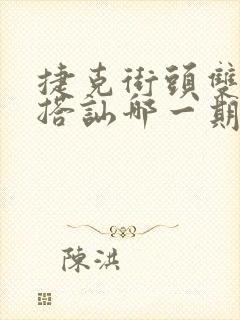 捷克街頭雙
搭訕哪一期
陳洪